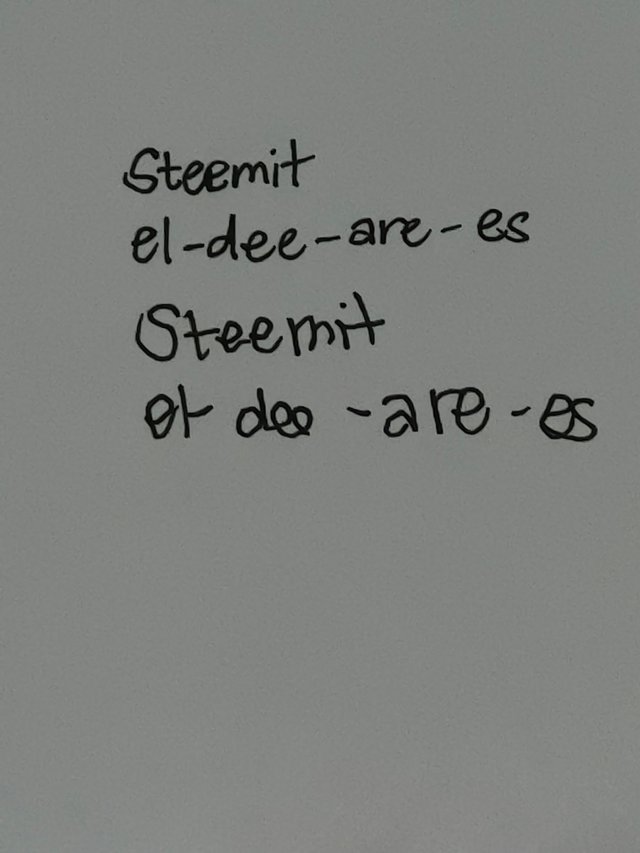 Steemit
el-dee-are-es
Steemit
el-dee-are-es